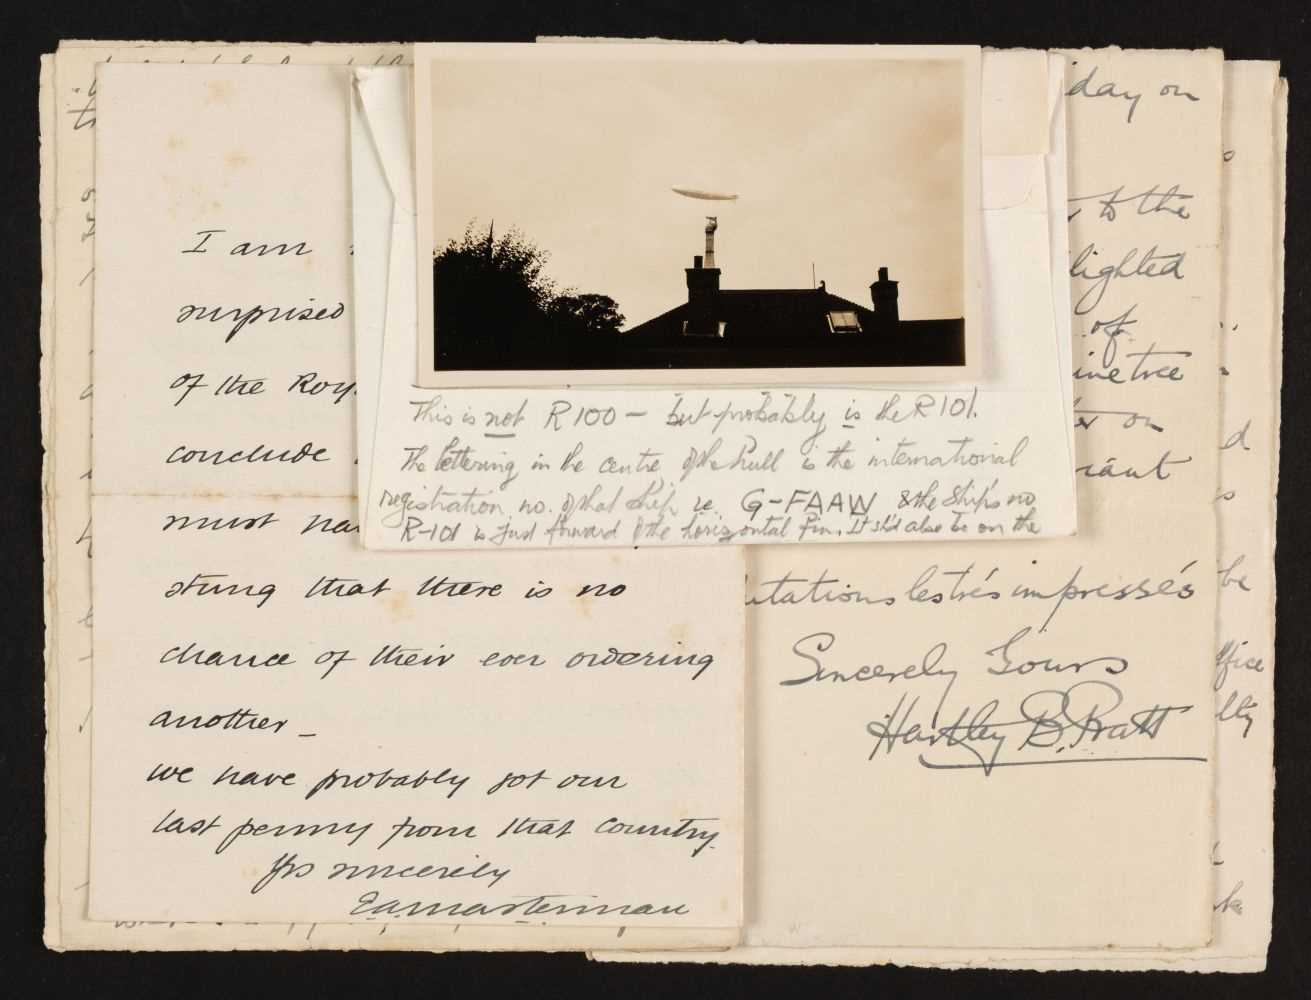 I am
surprised
of the Roy.
conclude
must ha
stung that there is no
chance of their ever ordering
another _
we have probably got our
last penny from that country.
Yrs sincerely
E A Masterman
This is not R100 — but probably is the R101.
The lettering in the centre of the hull is the international
registration no. of that ship ie. G-FAAW & the ship's no
R-101 is just forward of the horizontal fin. It sh'd also be on the
day on
to the
lighted
of
ine tree
on
utations les trés impressés
Sincerely Yours
Hartley B. Pratt
be
ffice
lty